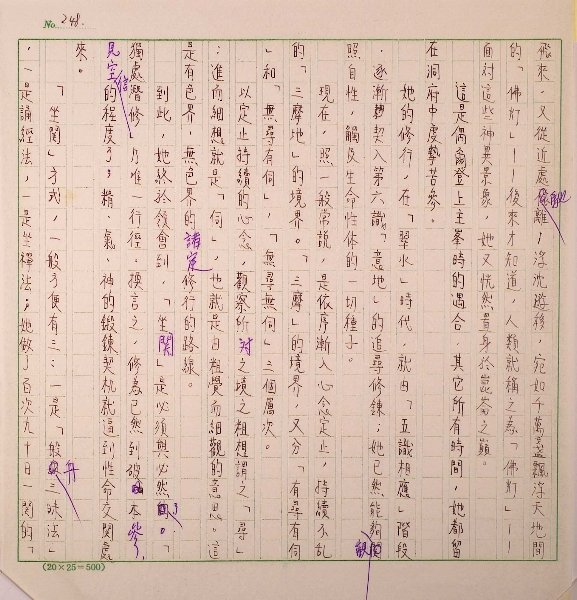 No. 248.
飛來，又從近處飄離；浮沈遊移，宛如千萬盞飄浮天地間
的「佛灯」——後來才知道，人類就稱之為「佛灯」——
面對這些神異景象，她又恍然置身於崑崙之巔。
這是偶爾登上主峯時的遇合，其它所有時間，她都留
在洞府中虔摯苦參。
她的修行，在「翠水」時代，就由「五識相應」階段
，逐漸契入第六識「意地」的追尋修鍊；她已然能夠觀
照自性，觸及生命性体的一切種子。
現在，照一般常說，是依序漸入心念定止，持續不亂
的「三摩地」的境界。「三摩」的境界，又分「有尋有伺
」和「無尋有伺」、「無尋無伺」三個層次。
以定止持續的心念，觀察所對之境之粗想謂之「尋」
；進而細想就是「伺」，也就是由粗覺而細觀的意思。這
是有色界，無色界的諸定修行的路線。
到此，她終於領會到，「坐關」是必須與必然了。「
獨處潛修」乃唯一行徑，換言之，修為已然到破本參，
見空性的程度了；精、氣、神的鍛鍊契机就逼到性命交關處
來。
「坐關」方式，一般方便有三：一是「般舟三昧法」
，一是誦經法，一是坐禪法；她做了百次九十日一関的「
(20×25=500)